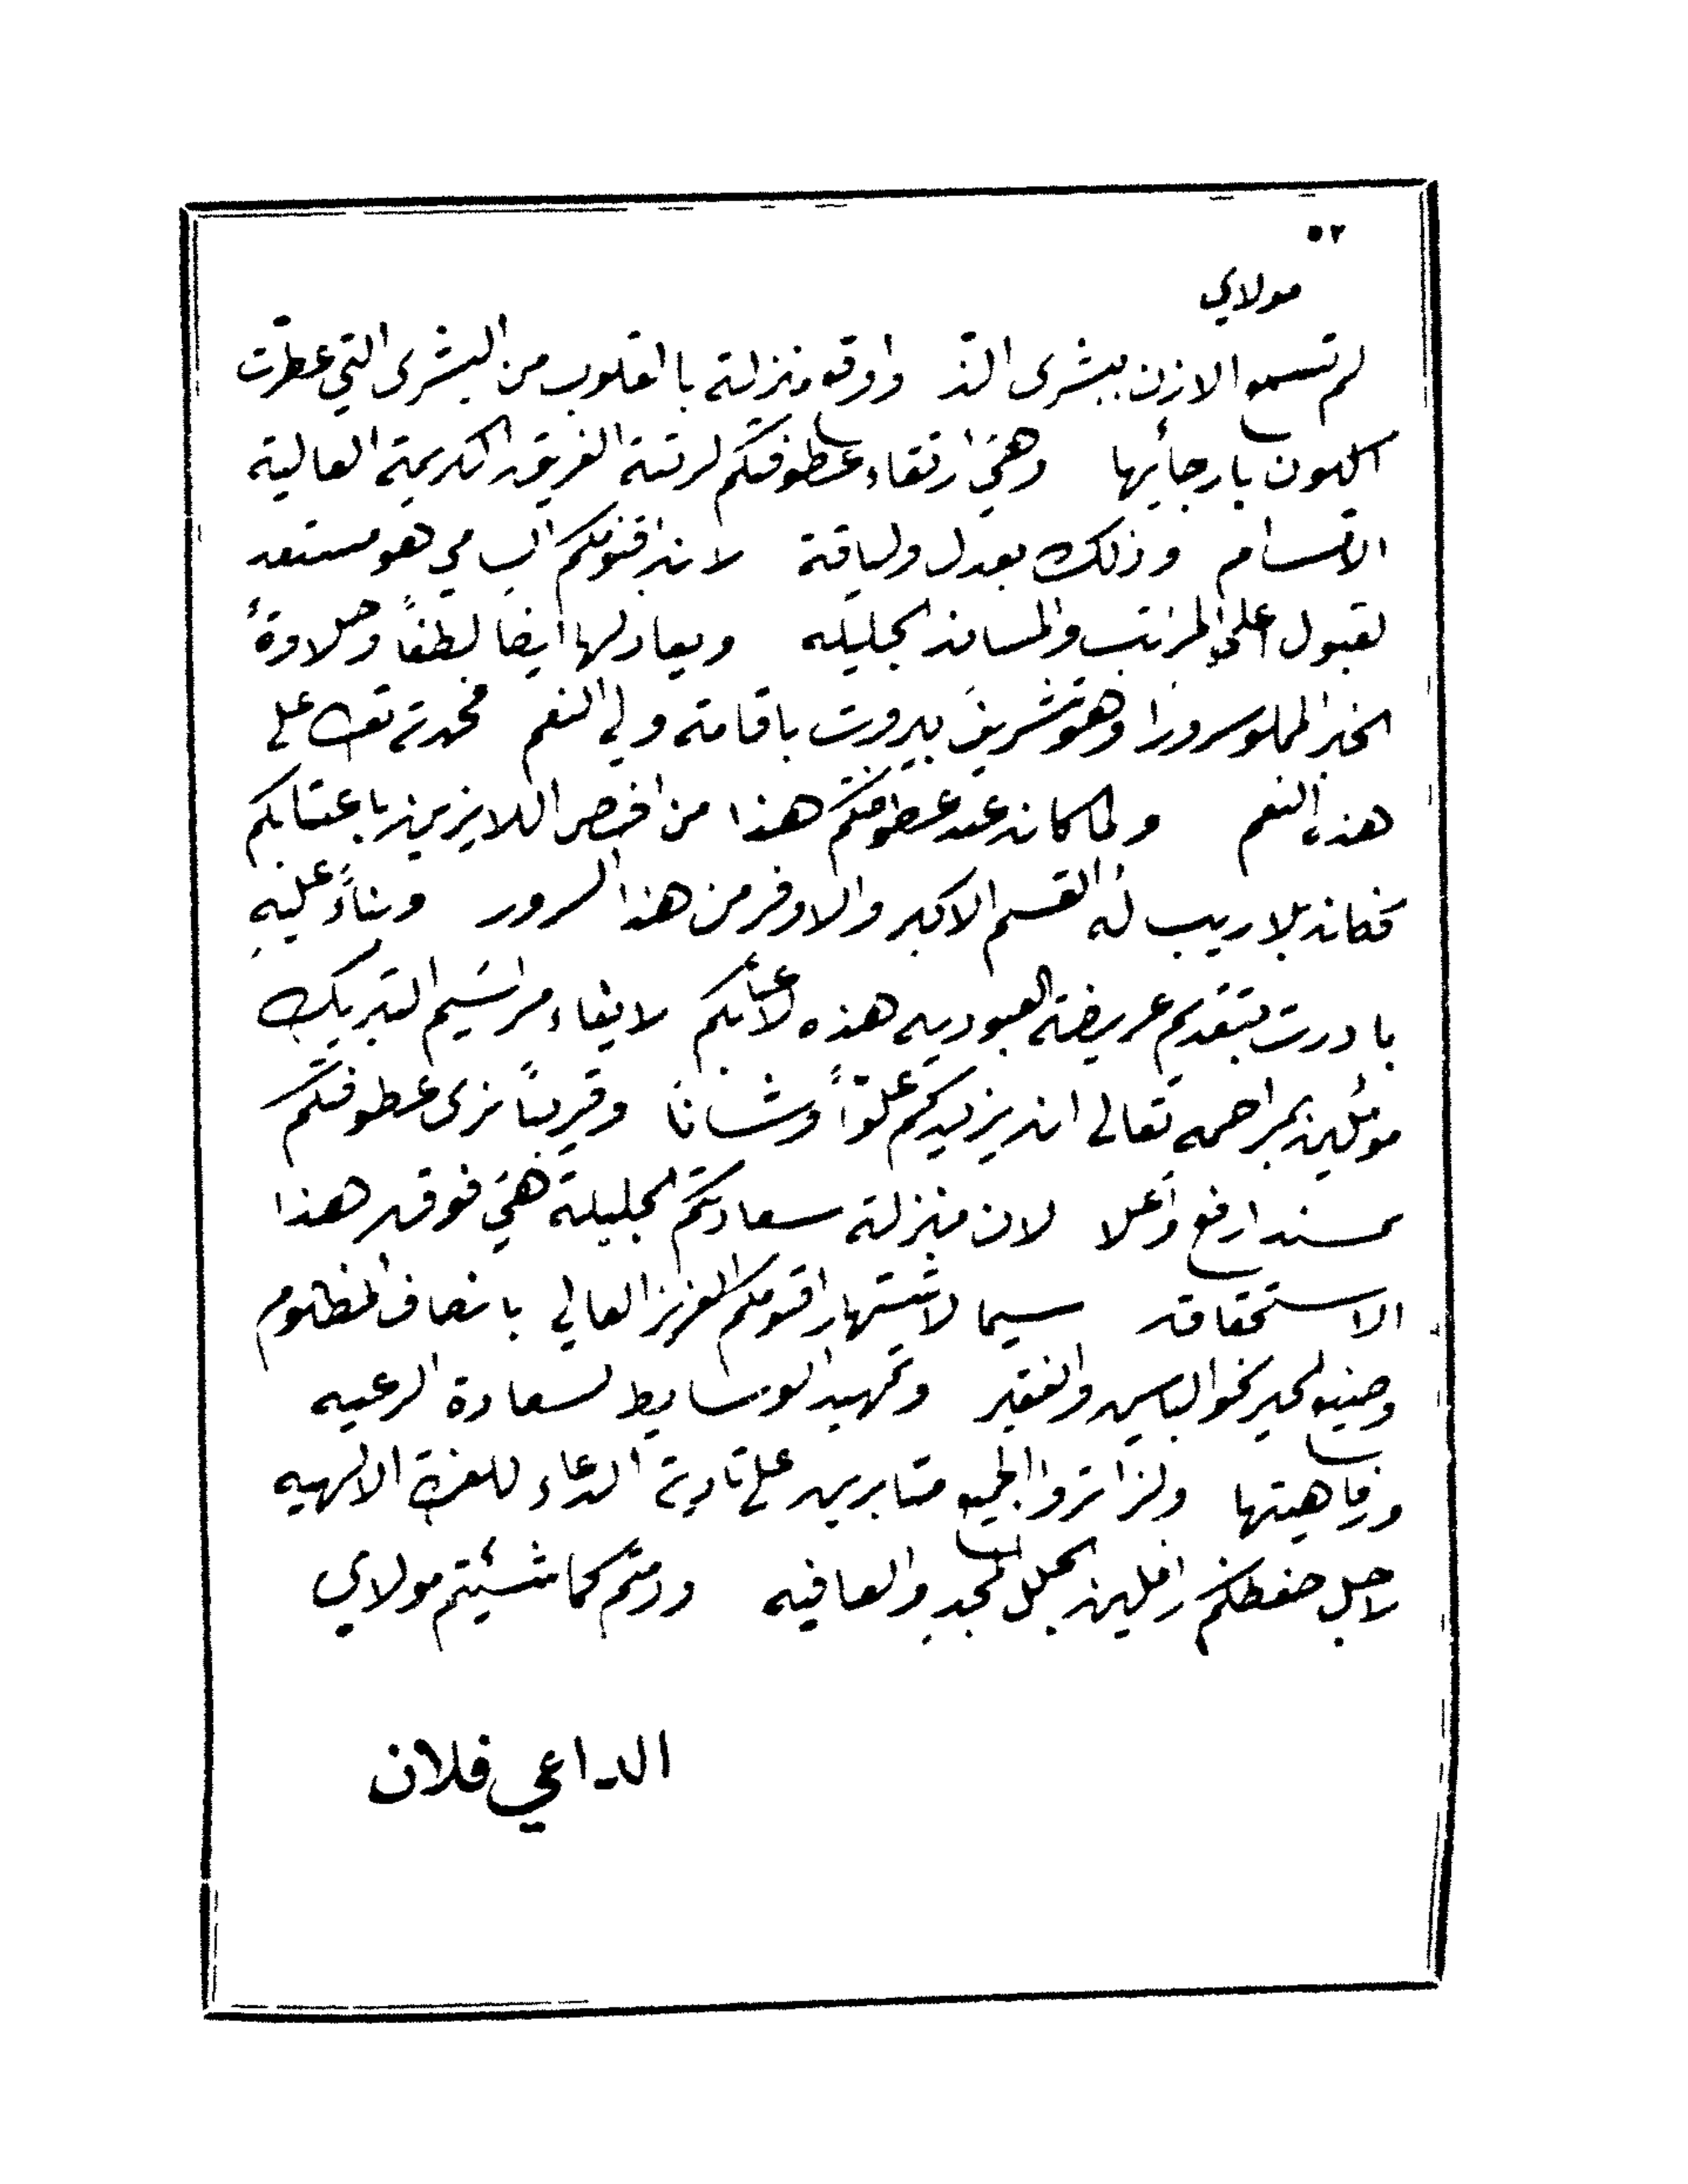 ٥٢
مولاي
لم تسمع الاذن ببشرى الذ واوقع منزلة بالقلوب من البشرى التي عطرت
الكون بارجائها وهي ارتقاء عطوفتكم لرتبة الفريق الكريمة العالية
الاقسام وذلك بعدل ولياقة لان اقنومكم السامي هو مستعد
لقبول اعلى المراتب والمساند الجليله ويعادلها ايضا لطفاً وحلاوةً
الخبر المملو سرورا وهو تشريف بيروت باقامته ولي النعم فحمدته تعالى على
هذه النعم ولما كان عبد عطوفتكم هذا من اخص اللايزين باعتابكم
فكان بلا ريب له القسم الاكبر والاوفر من هذا السرور وبناءً عليه
بادرت بتقديم عريضة العبوديه هذه لاعتابكم لايفاء مراسيم التبريك
مؤملين بمراحمه تعالى ان يزيدكم علوّاً وشانا وقريباً نرى عطوفتكم
بمسند ارفع واعلا لان منزلة سعادتكم الجليلة هي فوق هذا
الاستحقاق سيما لاشتهار اقنومكم العزيز العالي بانصاف المظلوم
وصنيع الخير نحو البايس والفقير وتمهيد الوسايط لسعادة الرعيه
ورفاهيتها ولذا تروا الجميع مثابرين على تادية الدعاء للعزة الالهيه
لاجل حفظكم رافلين بحلل المجد والعافيه ودمتم كما شئتم مولاي
الداعي فلان